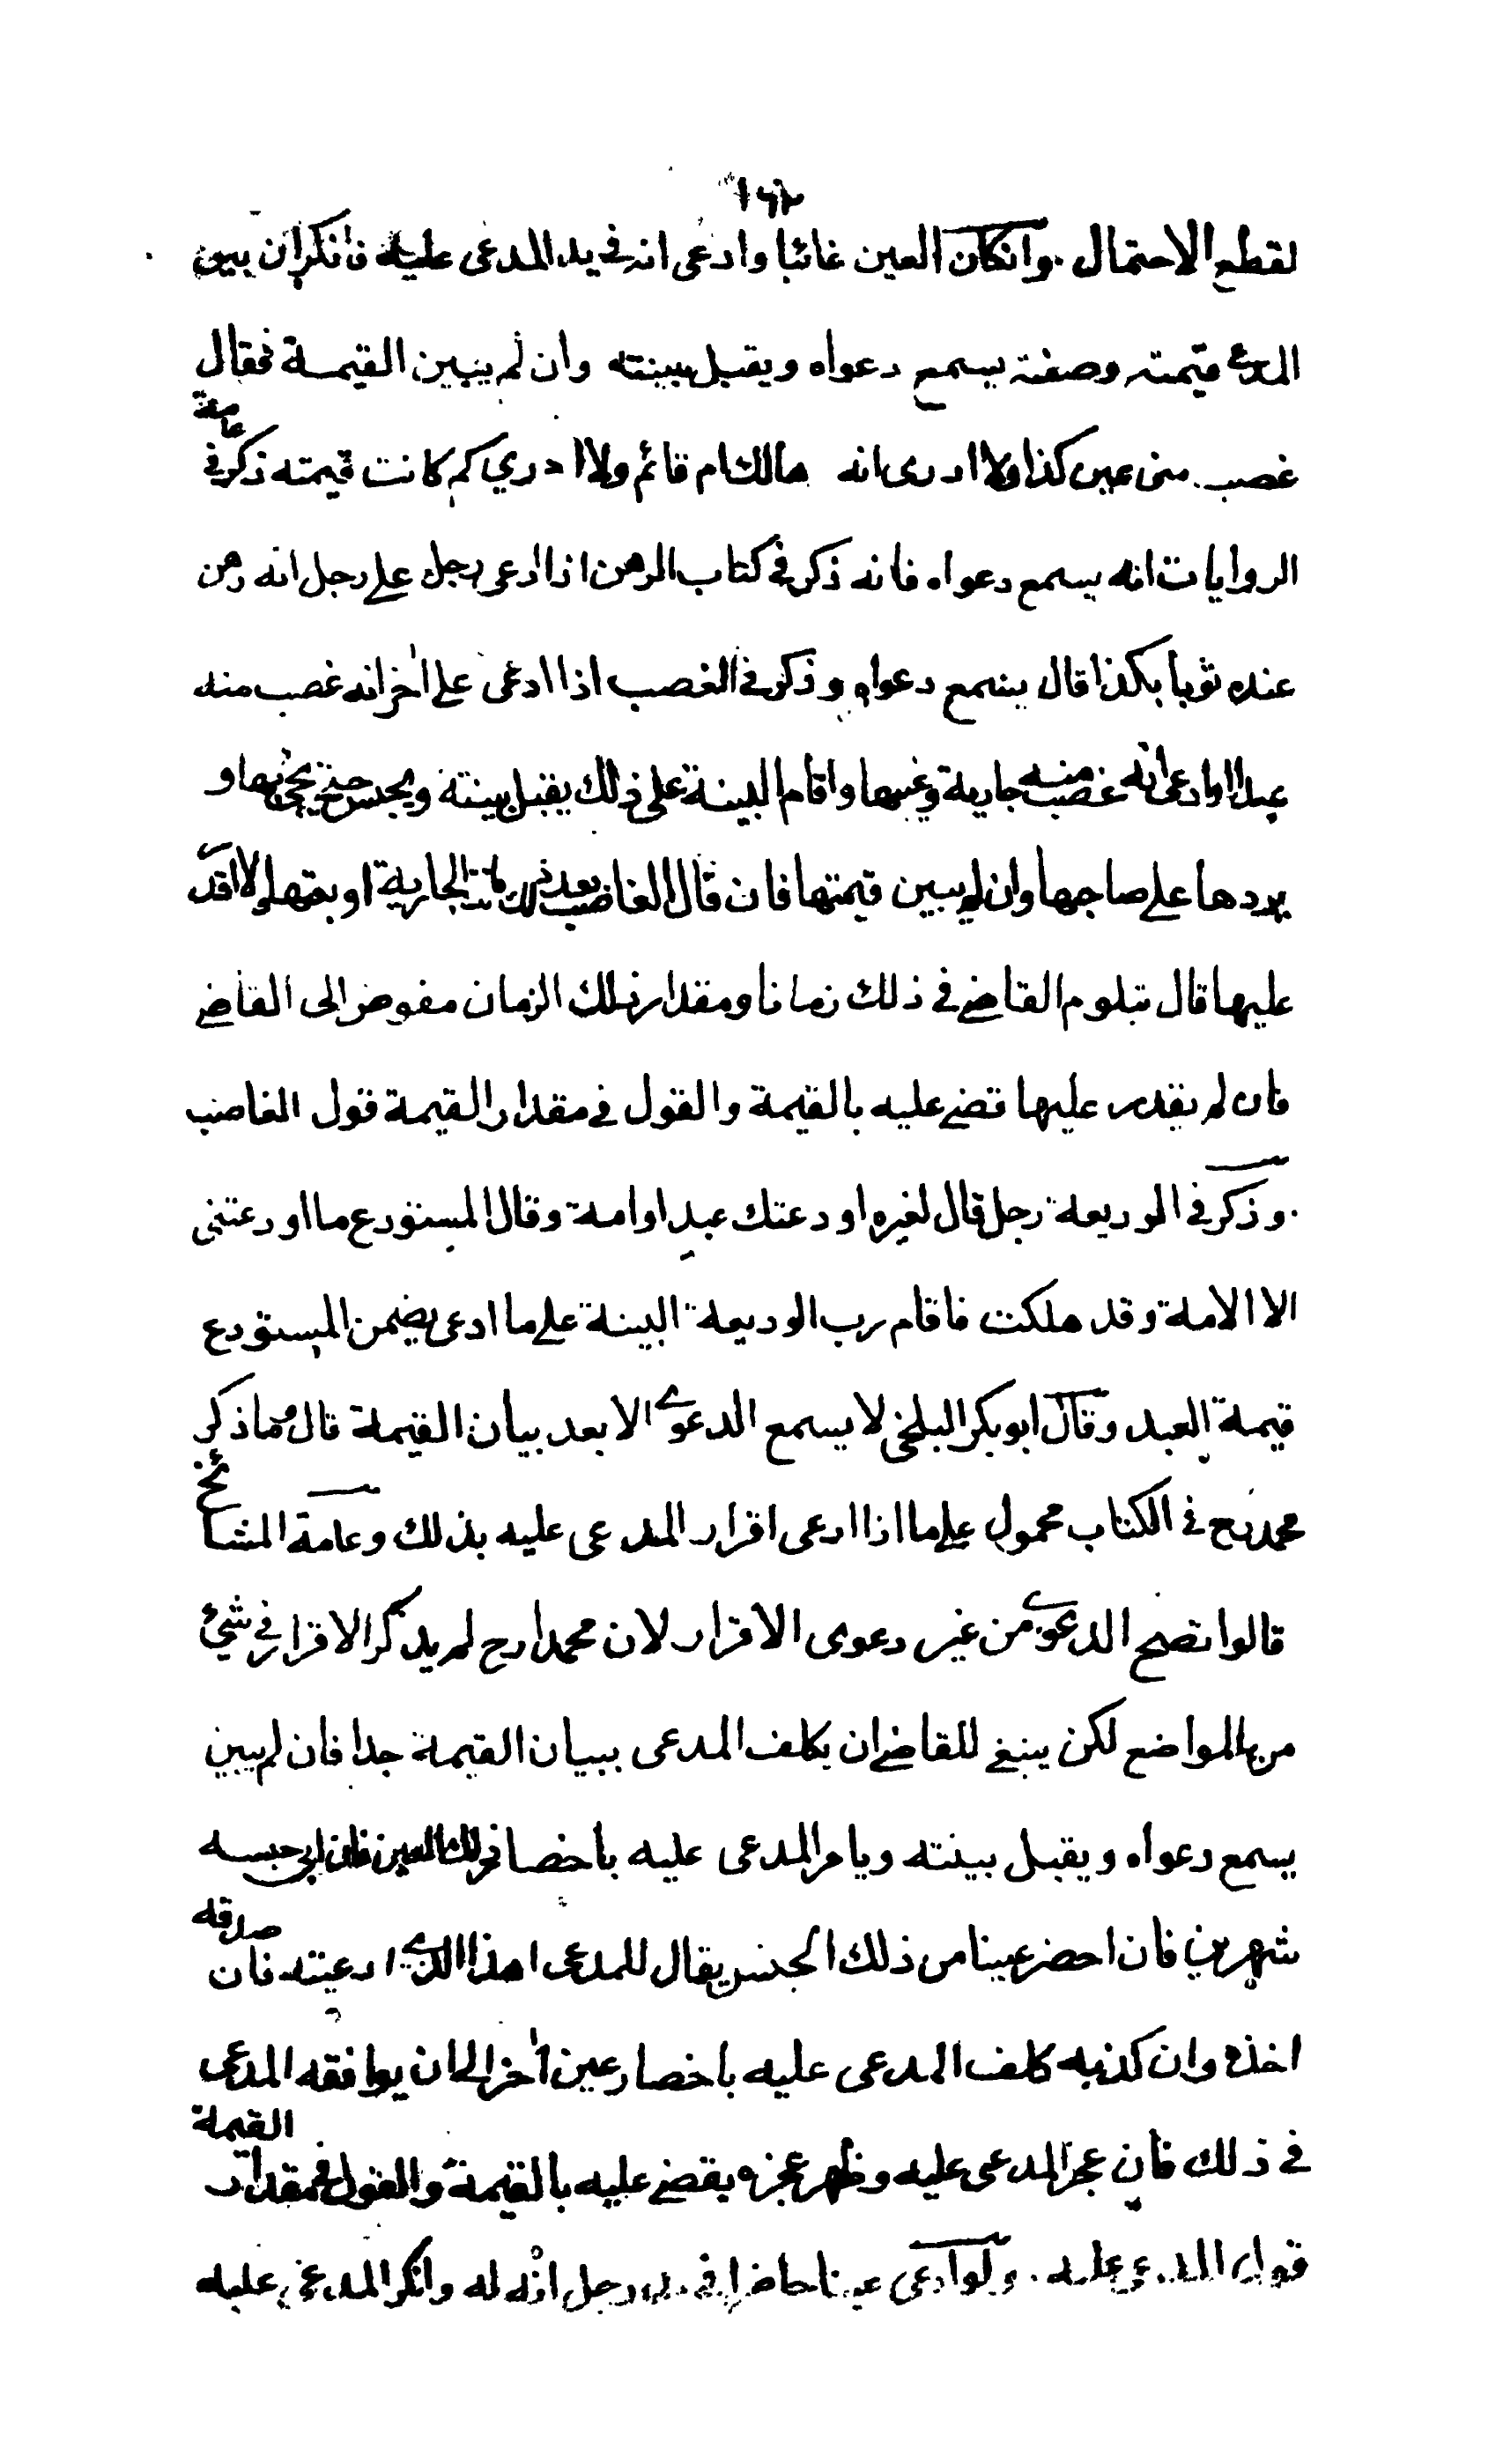 ١٦٢
لقطع الاحتمال . وانكان العين غائبا وادعى انه في يد المدعى عليه فانكر ان بين
المدعي قيمته وصفته يسمع دعواه ويقبل ببينته وان لم يبين القيمة فقال
غصب مني عين كذا ولا ادرى انه هالك ام قائم ولا ادري كم كانت قيمته ذكر في عامة
الروايات انه يسمع دعواه فانه ذكر في كتاب الرهن اذا ادعى رجل على رجل انه رهن
عنده ثوبا بكذا قال يسمع دعواه وذكر في الغصب اذا ادعى على اٰخر انه غصب منه
عبدا او ادعى انه غصب منه جارية وغيبها واقام البينة على ذلك يقبل بينته ويحبس حتى يجئ بها و
يردها على صاحبها وان لم يبين قيمتها فان قال الغاصب بعد ذلك ماتت الجارية او بعتها ولا اقدر
عليها قال يتلوم القاضي في ذلك زمانا ومقدار ذلك الزمان مفوض الى القاضي
فان لم يقدر عليها قضي عليه بالقيمة والقول في مقدار القيمة قول الغاصب
. وذكر في الوديعة رجل قال لغيره اودعتك عبدا وامة وقال المستودع ما اودعتنى
الا الامة وقد هلكت فاقام رب الوديعة البينة على ما ادعى يضمن المستودع
قيمة العبد وقال ابو بكر البلخي لا يسمع الدعوي الا بعد بيان القيمة قال وما ذكر
محمد رح في الكتاب محمول على ما اذا ادعى اقرار المدعى عليه بذلك وعامة المشائخ
قالوا تصح الدعوي من غير دعوى الاقرار لان محمدا رح لم يذكر الاقرار في شئ
من المواضع لكن ينبغي للقاضي ان يكلف المدعى ببيان القيمة جدا فان لم يبين
يسمع دعواه ويقبل بينته ويامر المدعى عليه باحضار ذلك العين فان ابى حبسه
شهرين فان احضر عينا من ذلك الجنس يقال للمدعى اهذا الذي ادعيته فان صدقه
اخذه وان كذبه كلف المدعى عليه باحضار عين اٰخر الى ان يوافقه المدعى
في ذلك فان عجز المدعى عليه وظهر عجزه يقضي عليه بالقيمة والقول في مقدار القيمة
قول المدعى عليه . ولو ادعى عينا حاضرا في يد رجل انه له وانكر المدعى عليه